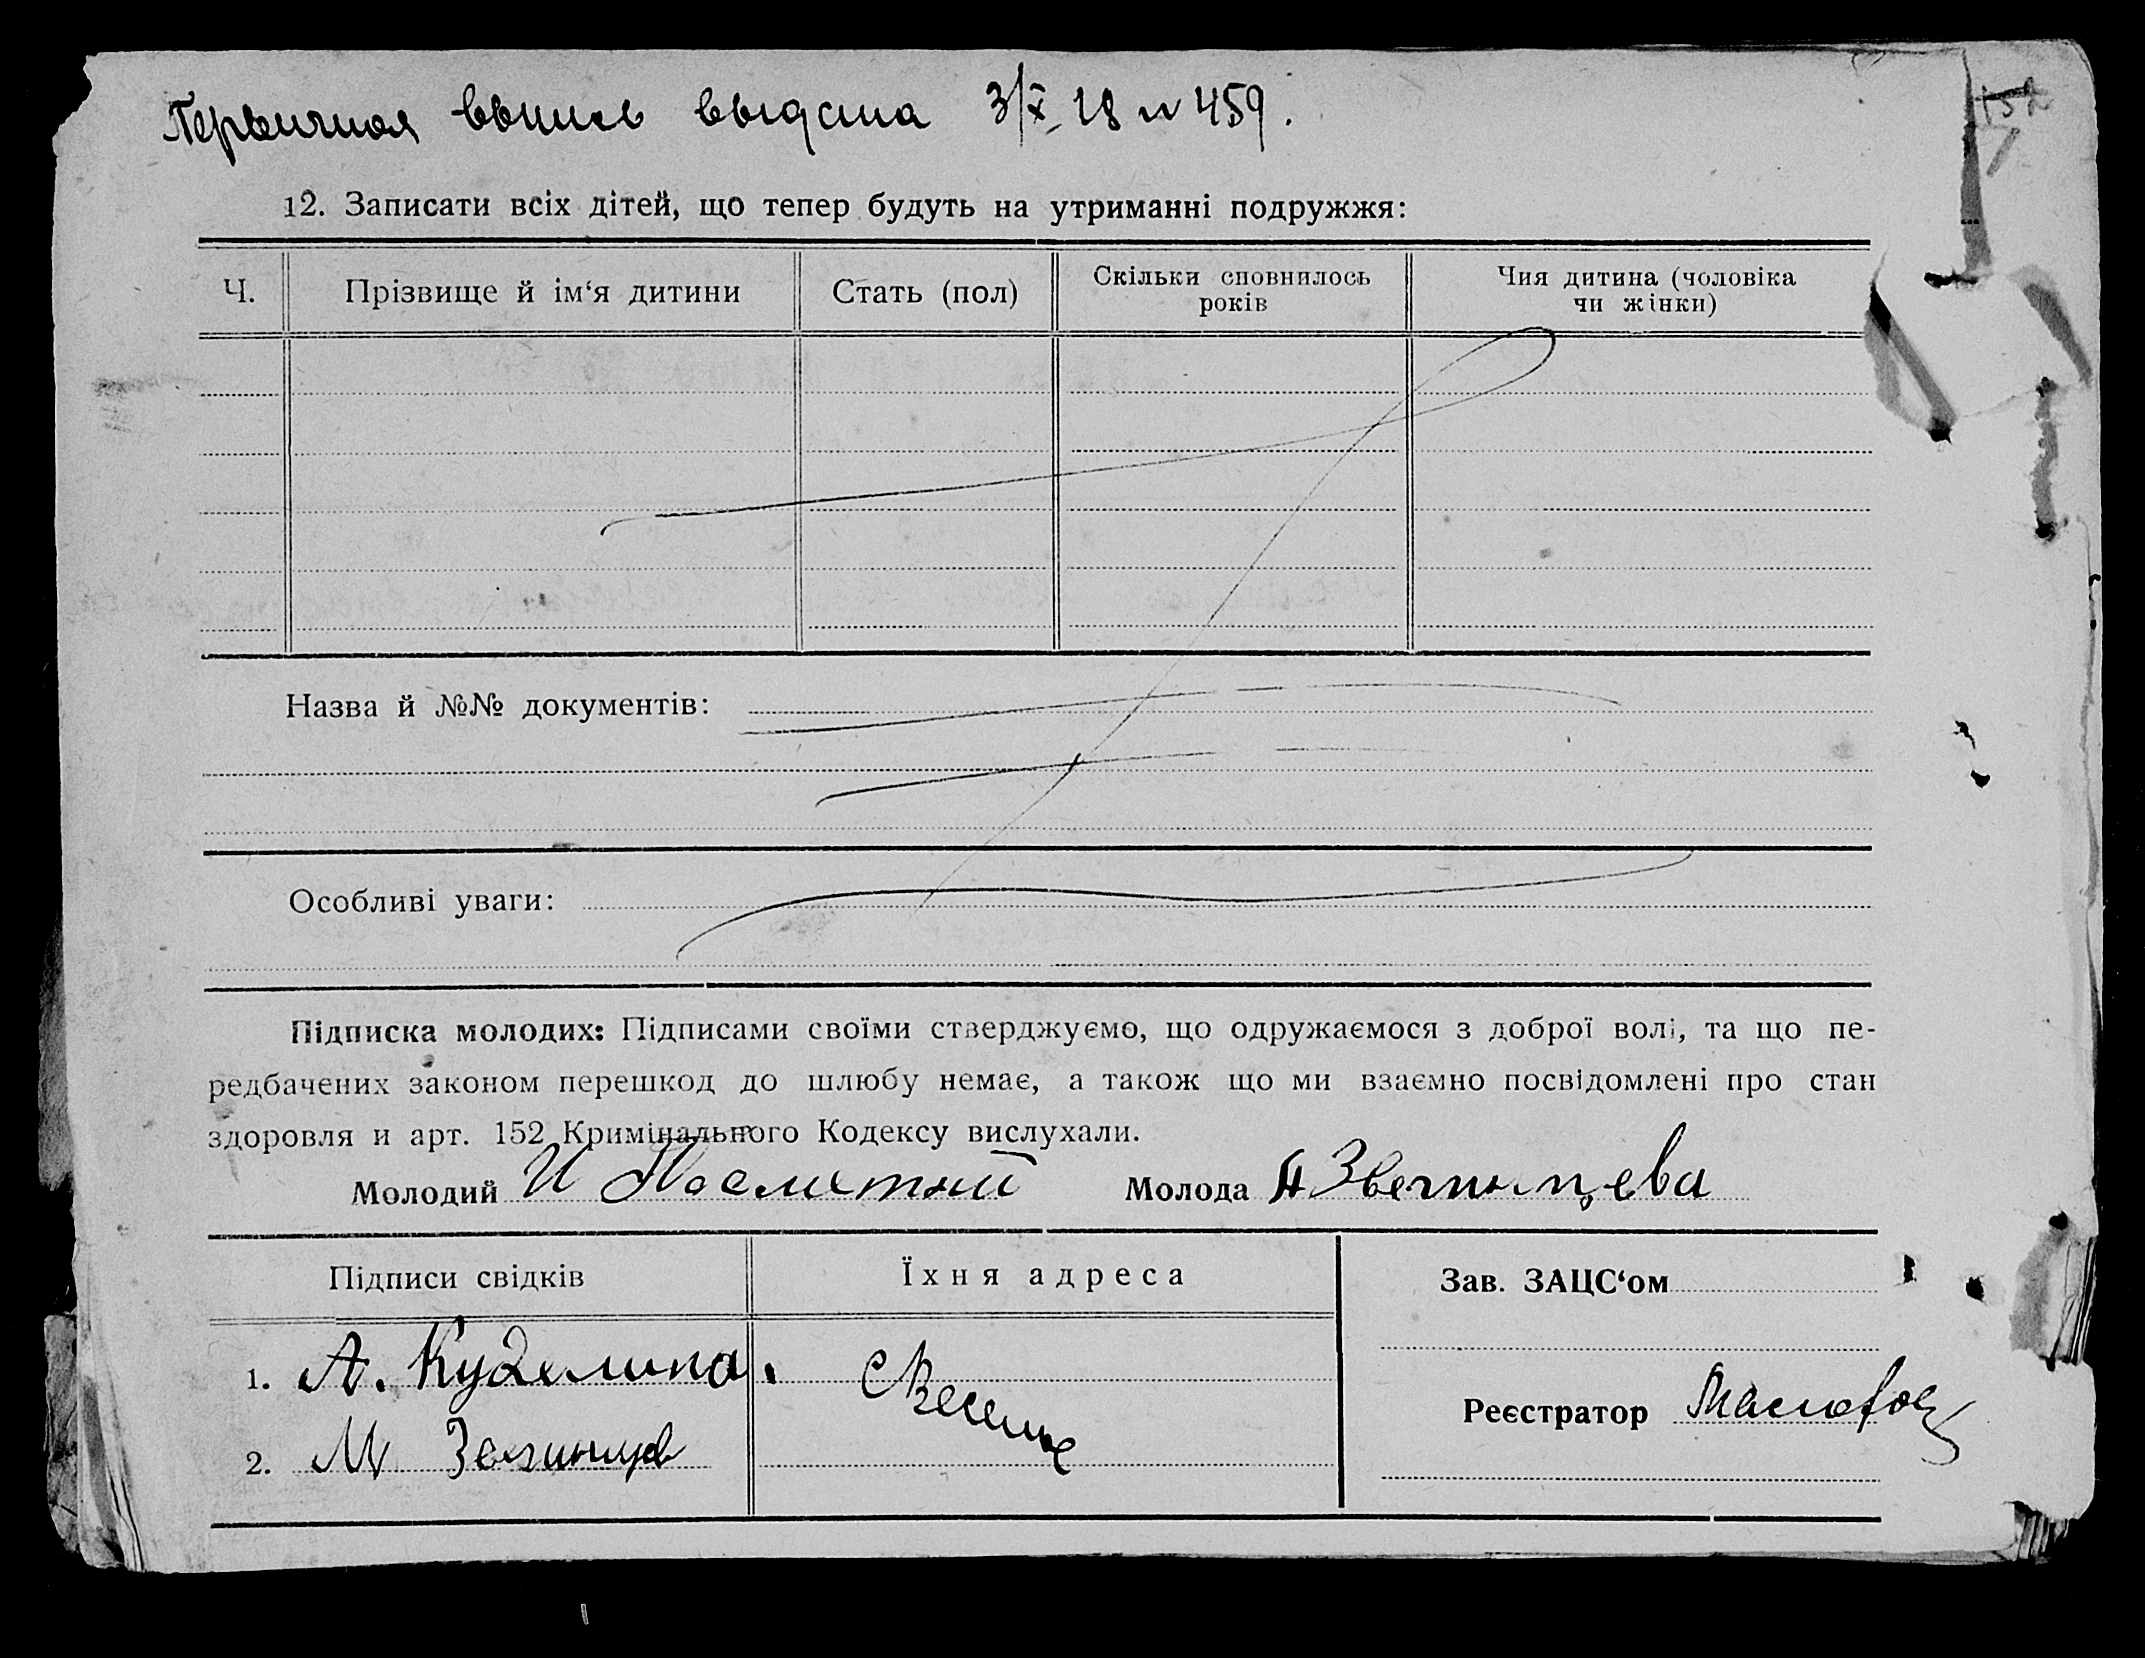 Первичная выпись выдана 3/X 28 N 459.
12. Записати всіх дітей, що тепер будуть на утриманні подружжя:
Ч. Прізвище й ім‘я дитини Стать (пол) Скільки сповнилось років Чия дитина (чоловіка чи жінки)
Назва й №№ документів:
Особливі уваги:
Підписка молодих: Підписами своїми стверджуємо, що одружаємося з доброї волі, та що пе-
редбачених законом перешкод до шлюбу немає, а також що ми взаємно посвідомлені про стан
здоровля и арт. 152 Кримінального Кодексу вислухали.
Молодий И Молода А Звегинцева
Підписи свідків Їхня адреса Зав. ЗАЦС‘ом
1. А. Куделина. с Веселое
Реєстратор
2. М Звегинцев